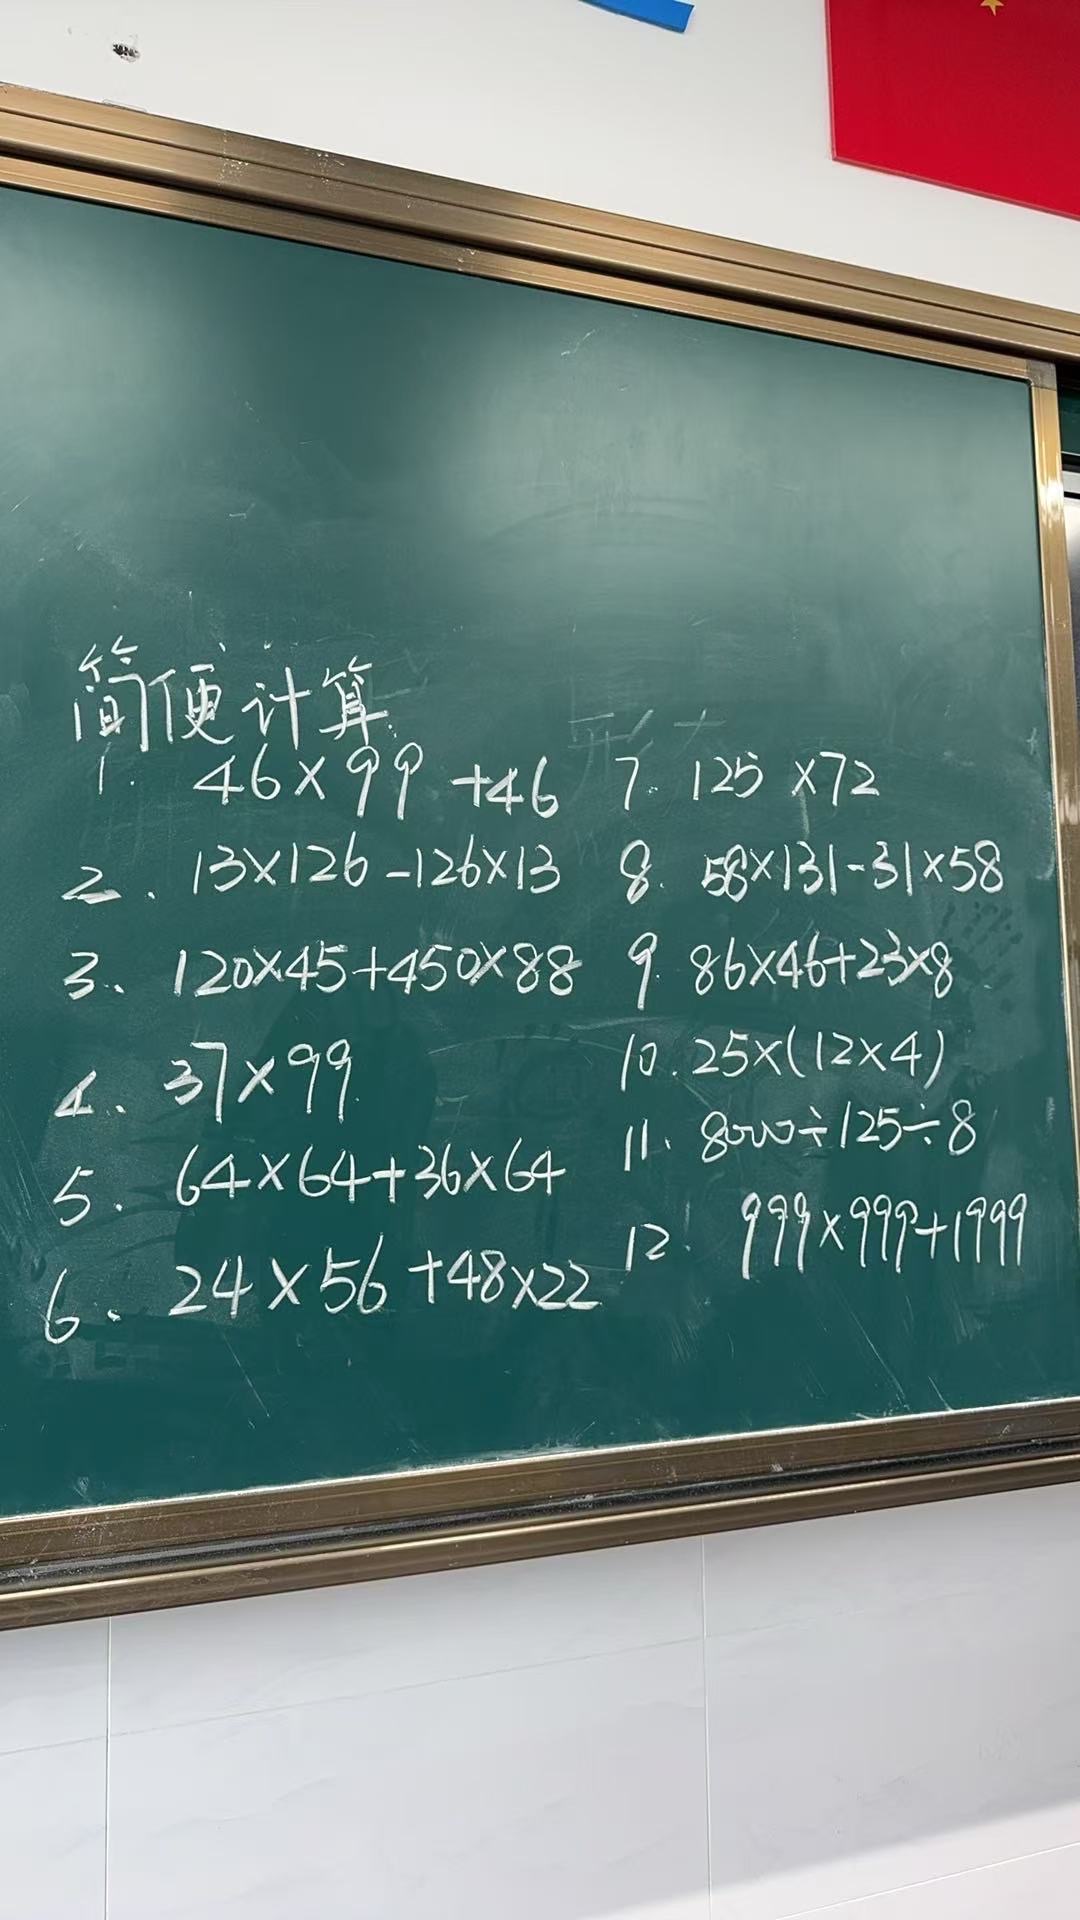 简便计算
1. 46×99+46
2. 13×126-126×13
3. 120×45+450×88
4. 37×99
5. 64×64+36×64
6. 24×56+48×22
7. 125×72
8. 58×131-31×58
9. 86×46+23×8
10. 25×(12×4)
11. 8000÷125÷8
12. 999×999+1999